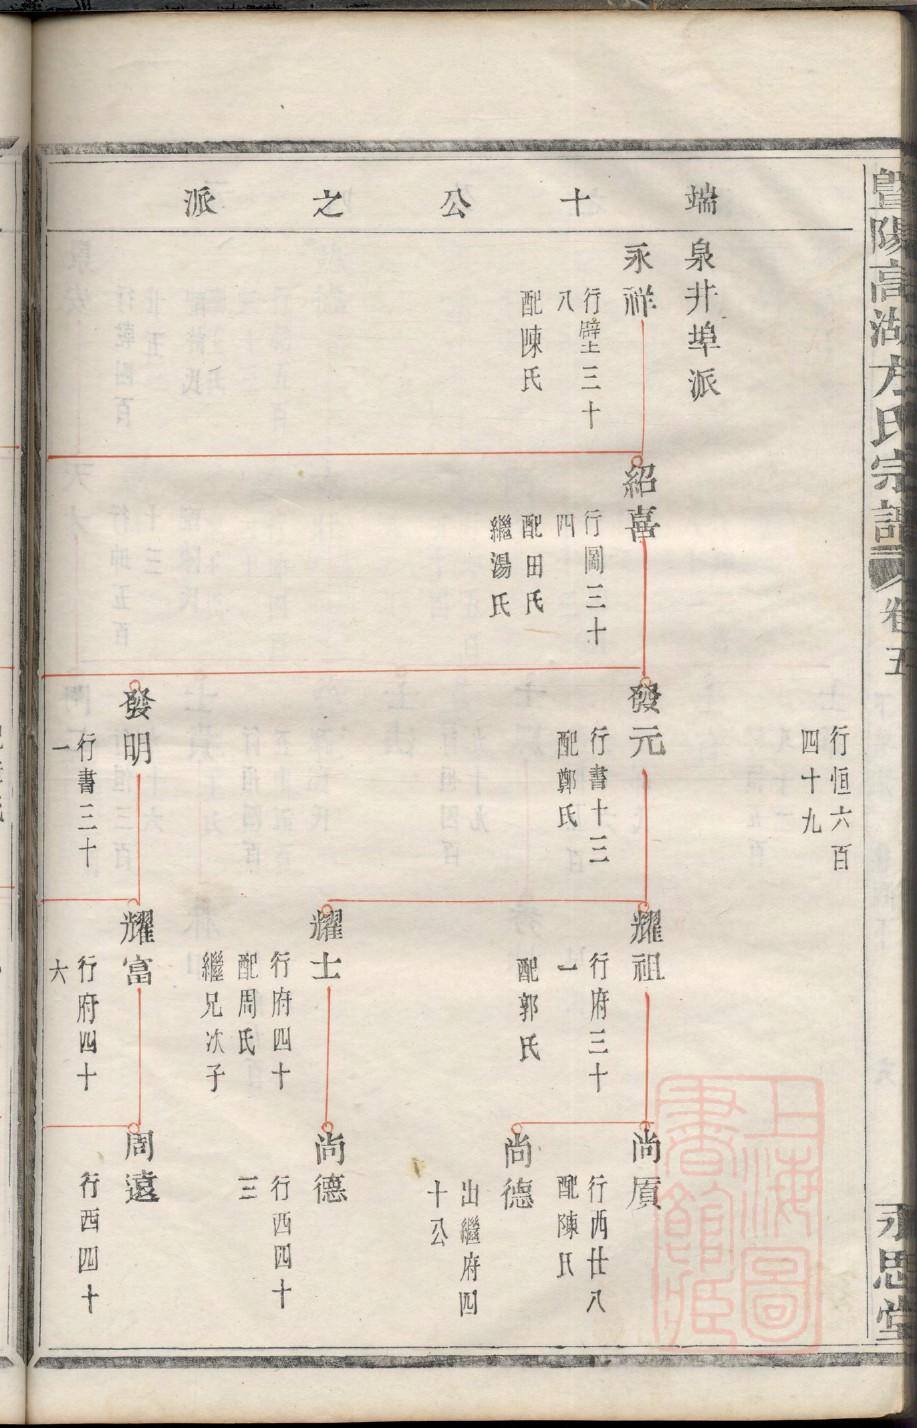 暨陽高湖方氏宗譜
卷五
永思堂
端十公之派
泉井埠派
永祥
行璧三十
八
配陳氏
紹喜
行圖三十
四
配田氏
繼湯氏
行恒六百
四十九
發元
行書十三
配鄭氏
發明
行書三十
一
耀祖
行府三十
一
配郭氏
耀士
行府四十
配周氏
繼兄次子
耀富
行府四十
六
尚質
行西廿八
配陳氏
尚德
出繼府四
十公
尚德
行西四十
三
周遠
行西四十
上海圖
書館藏